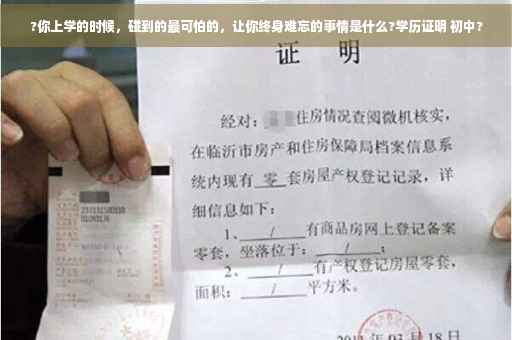 ?你上学的时候，碰到的最可怕的，让你终身难忘的事情是什么?学历证明 初中?
证 明
经对：住房情况查阅微机核实，
在临沂市房产和住房保障局档案信息系
统内现有 零 套房屋产权登记记录，详
细信息如下：
1、 / 有商品房网上登记备案
零套，坐落位于： / ；
2、 / 有产权登记房屋零套，
面积： / 平方米。
03 月 18 日